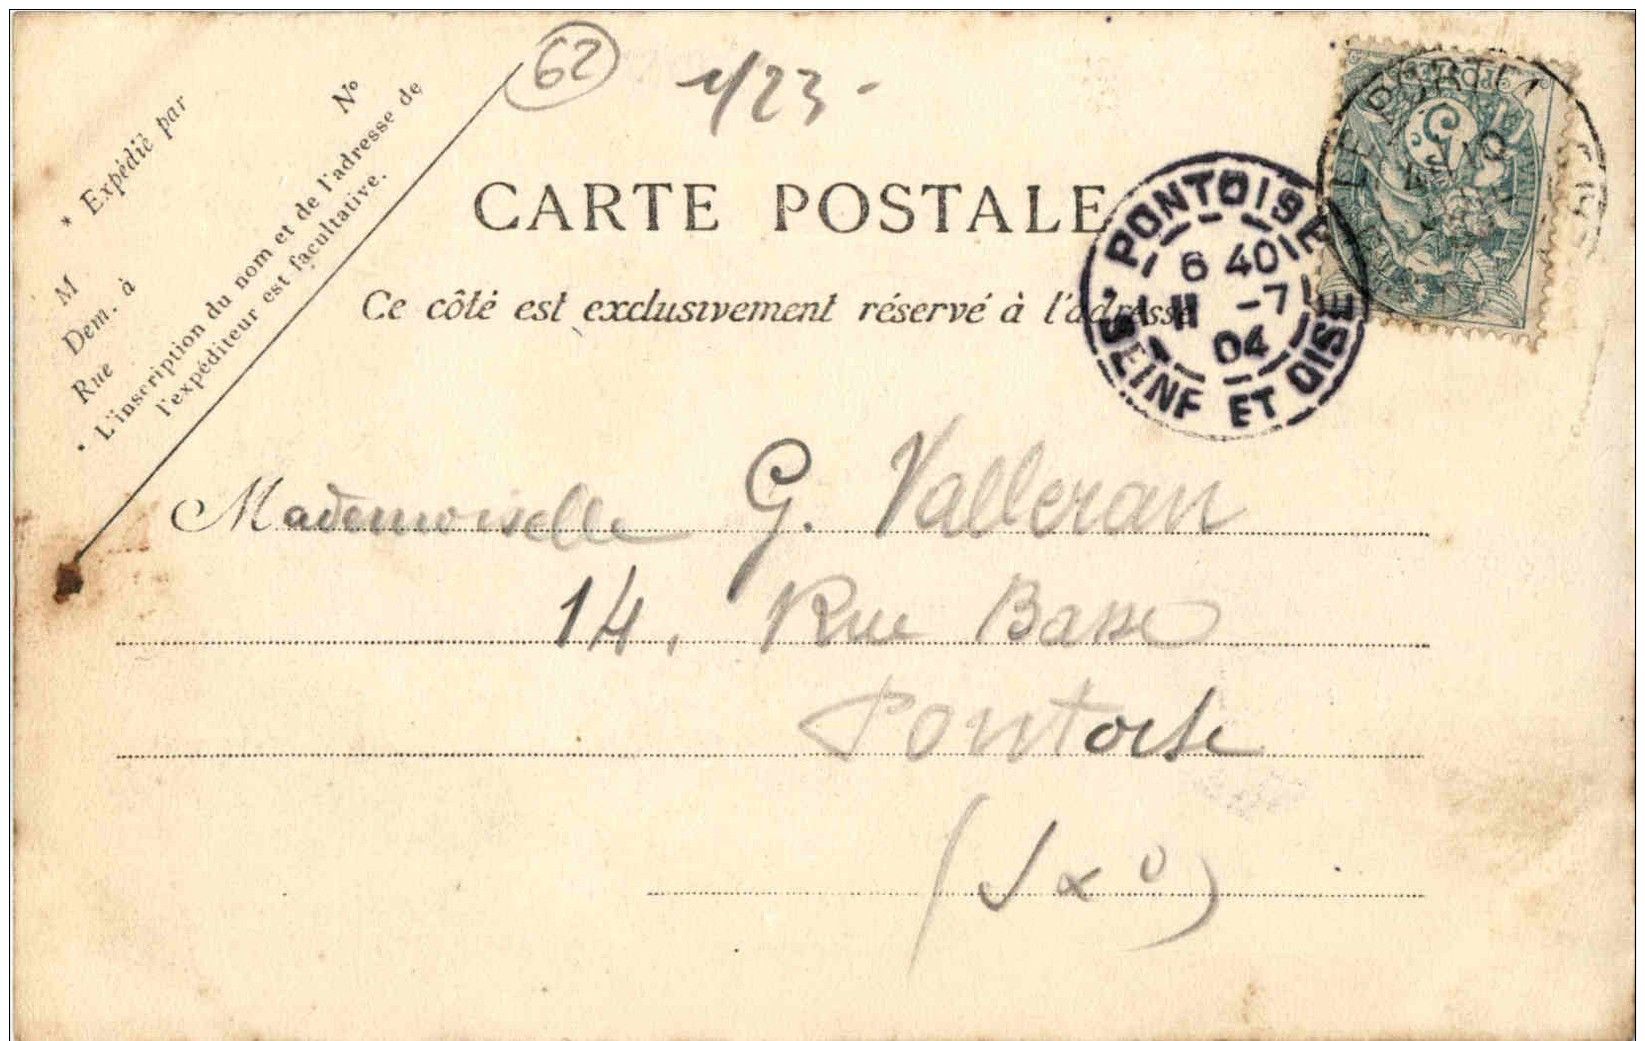 62
1/23 -
* Expédié par
N°
M
Dem. à
Rue
* L'inscription du nom et de l'adresse de
l'expéditeur est facultative.
CARTE POSTALE
Ce côté est exclusivement réservé à l'adresse
PONTOISE
6 40
11 -7
04
SEINE ET OISE
Mademoiselle G. Valleran
14, Rue Basse
Pontoise
(S x O)